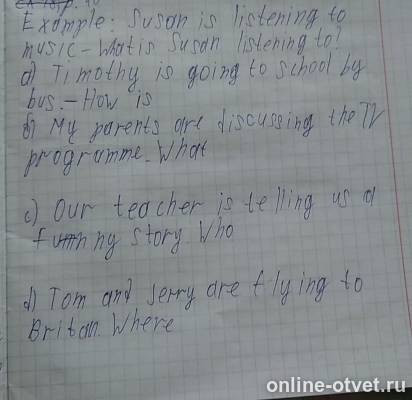 Example: Susan is listening to
music-What is Susan listening to?
a) Timothy is going to school by
bus.-How is
b) My parents are discussing the TV
programme. What
c) Our teacher is telling us a
funny story. Who
d) Tom and Jerry are flying to
Britan. Where
online-otvet.ru